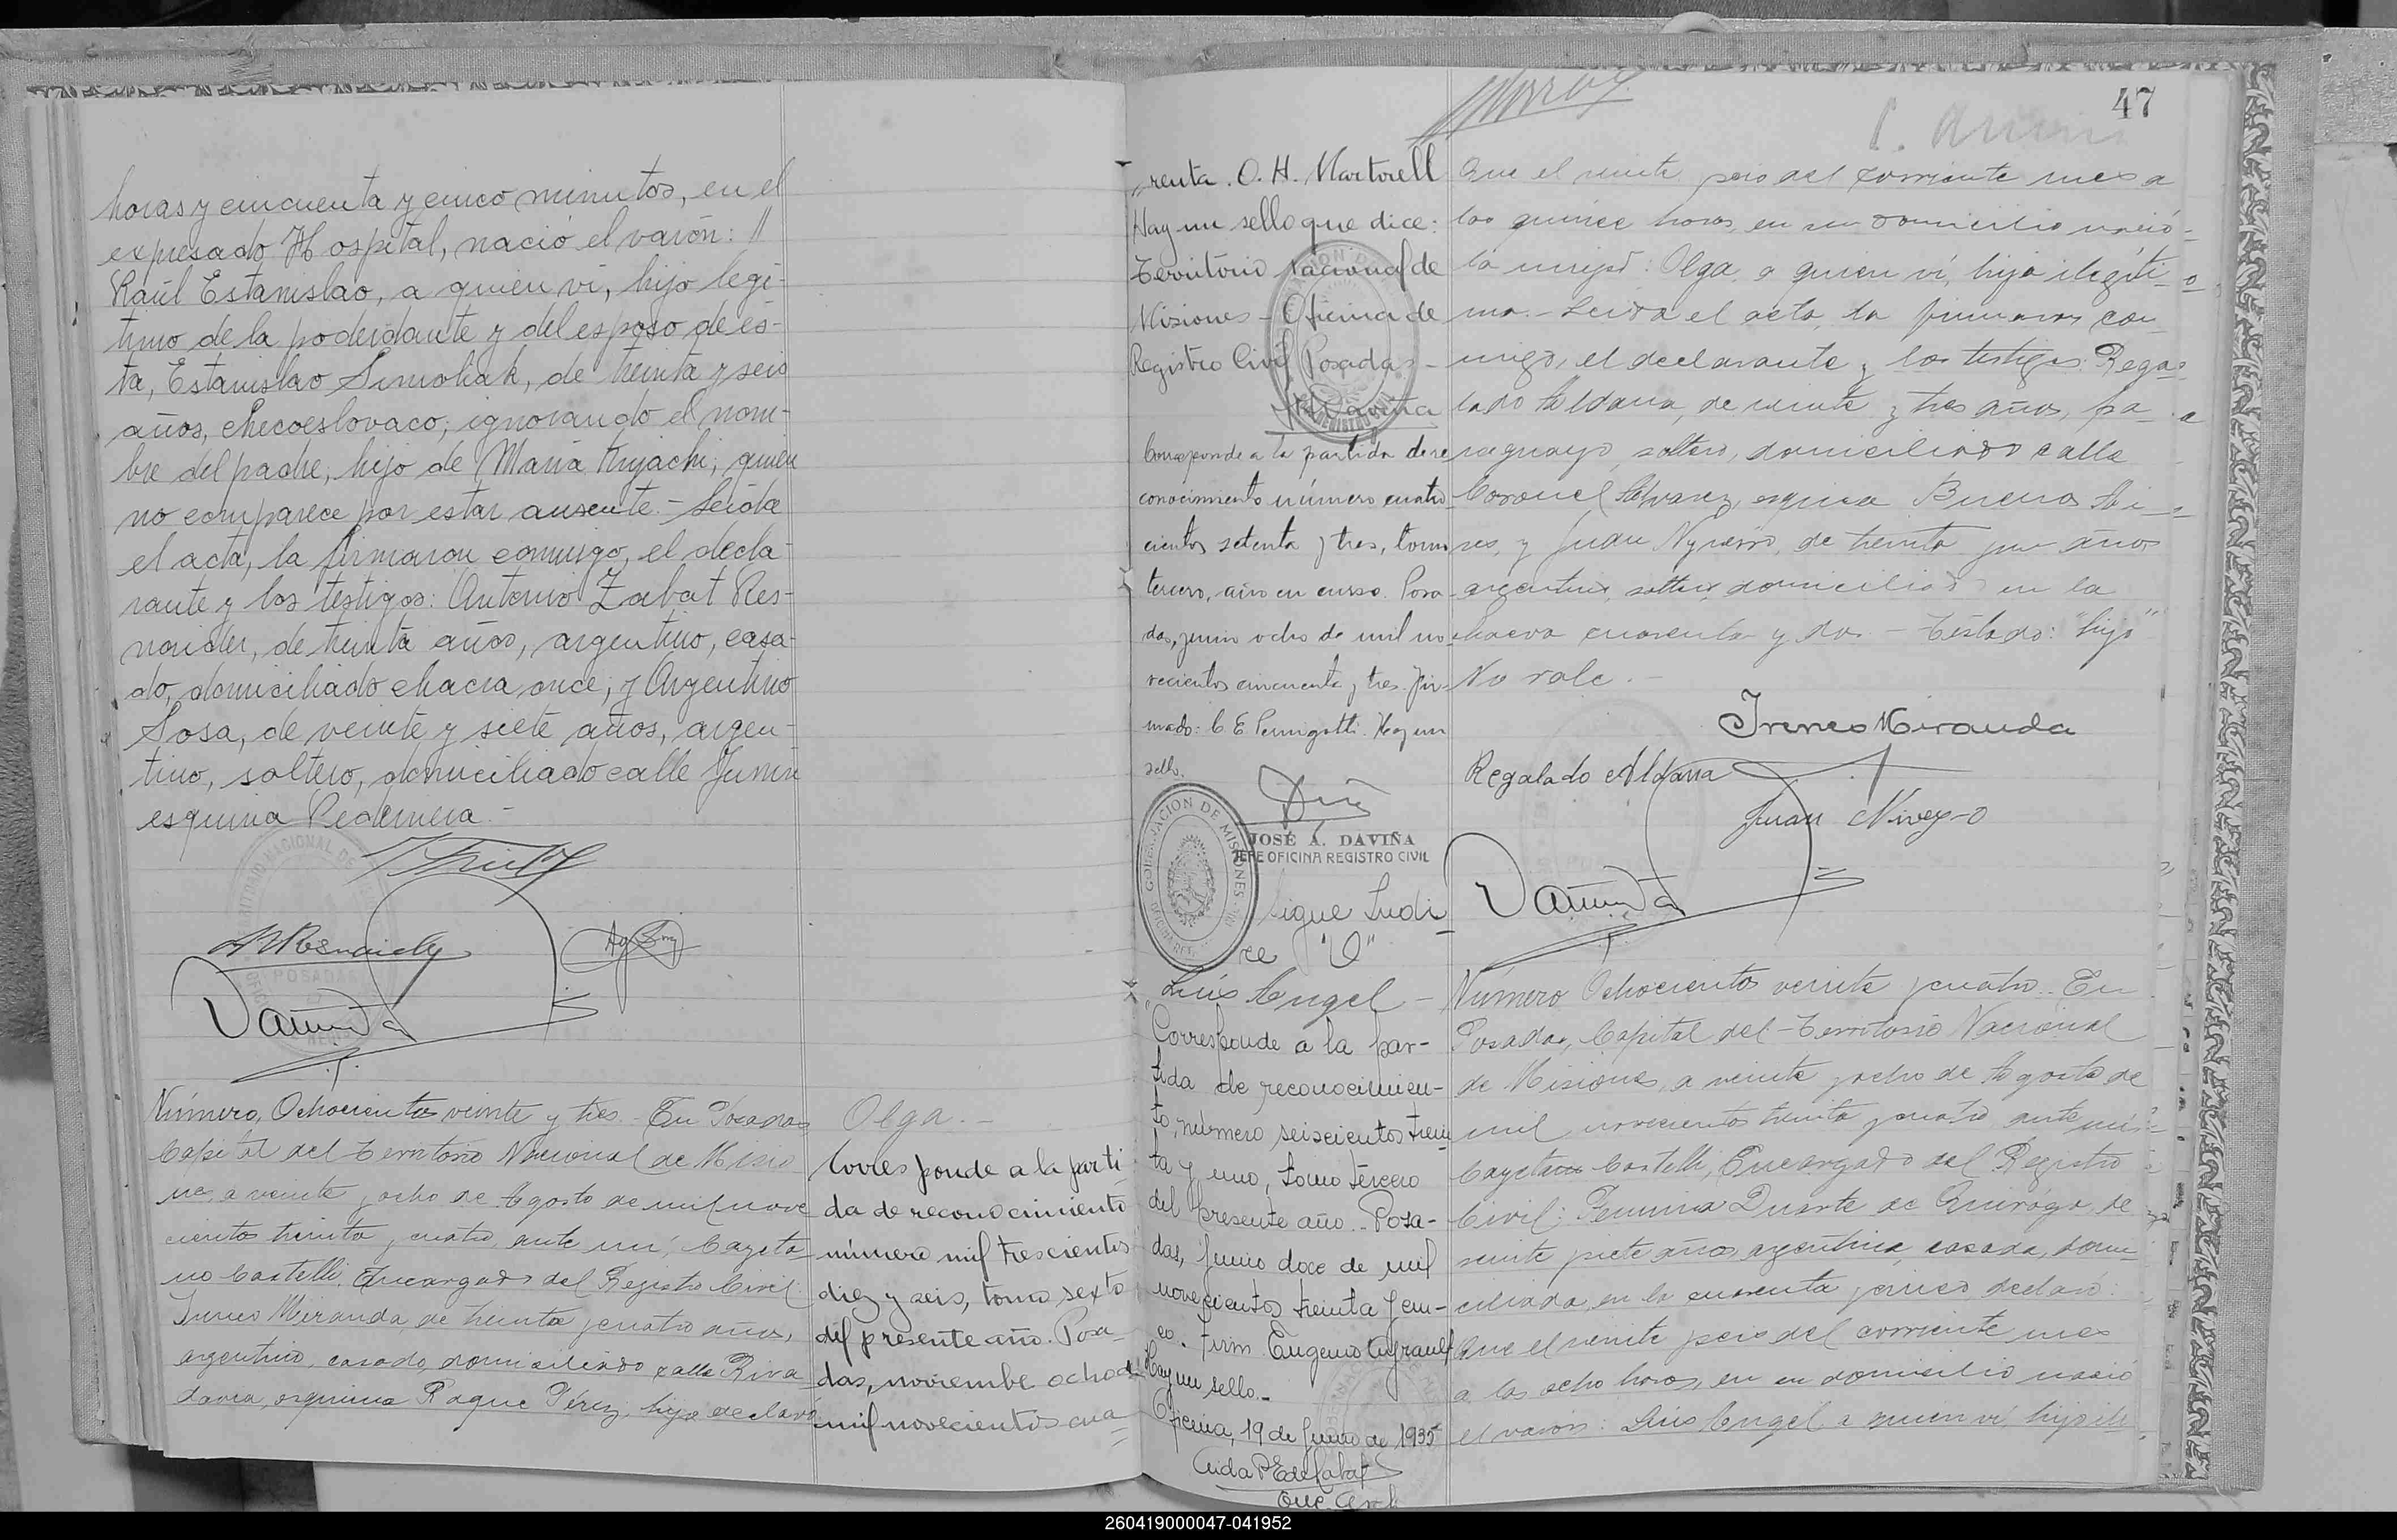 horas y cincuenta y cinco minutos, en el
expresado Hospital, nació el varón: //
Raúl Estanislao, a quien vi, hijo legí-
timo de la poderdante y del esposo de és-
ta, Estanislao Simoliak, de treinta y seis
años, checoeslovaco, ignorando el nom-
bre del padre, hijo de María ; quien
no comparece por estar ausente.- Leida
el acta, la firmaron conmigo, el decla-
rante y los testigos: Antonio Zabat Res-
noider, de treinta años, argentino, casa-
do, domiciliado chacra once; y Argentino
Sosa, de veinte y siete años, argen-
tino, soltero, domiciliado calle Junin
esquina Pedernera.-
POSADAS
Número, Ochocientos veinte y tres.- En Posadas
Capital del Territorio Nacional de Misio
nes, a veinte y ocho de Agosto de mil nove
cientos treinta y cuatro, ante mi, Cayeta-
no Castelli, Encargado del Registro Civil:
Ireneo Miranda, de treinta y cuatro años,
argentino, casado, domiciliado calle Riva
davia, esquina Roque Pérez, hijo declaro
Olga.-
Corresponde a la parti
da de reconocimiento
número mil trescientos
diez y seis, tomo sexto
del presente año. Posa-
das, noviembre ocho de
mil novecientos cua
47
renta. O. H. Martorell
Hay un sello que dice:
Territorio Nacional de
Misiones - Oficina de
Registro Civil Posadas-
Corresponde a la partida de re
conocimiento número cuatro
cientos setenta y tres, tomo
tercero, año en curso. Posa-
das, junio ocho de mil no-
vecientos cincuenta y tres. Fir-
mado: C E Pernigotti. Hay un
sello.
GOBERNACION DE MISIONES
JOSÉ A. DAVIÑA
JEFE OFICINA REGISTRO CIVIL
Sigue Indi
ce "O"
Luis Angel -
Corresponde a la par-
tida de reconocimien-
to, número seiscientos trein
ta y uno, tomo tercero
del presente año.- Posa-
das, Junio doce de mil
novecientos treinta y cin-
co. Firm. Eugenio
Hay un sello.-
Oficina, 19 de Junio de 1935
Que el veinte y seis del corriente mes a
las quince horas, en su domicilio nació-
la mujer: Olga, a quien vi, hija ilegíti
ma.- Leida el acta, la firmaron con
migo, el declarante y los testigos: Rega-
lado Aldana, de veinte y tres años, pa
raguayo, soltero, domiciliado calle
Coronel Alvarez, esquina Buenos Ai-
res, y Juan Niveyro, de treinta y un años
argentino, soltero, domiciliado en la
chacra cuarenta y dos.- Testado: "hijo"
No vale.-
Ireneo Miranda
Regalado Aldana
Juan Niveyro
Número Ochocientos veinte y cuatro.- En
Posadas, Capital del Territorio Nacional
de Misiones, a veinte y ocho de Agosto de
mil novecientos treinta y cuatro, ante mí
Cayetano Castelli, Encargado del Registro
Civil; Duarte de Quiroga, de
veinte y siete años, argentina, casada, domi-
ciliada, en la cuarenta y cinco declaró:
Que el veinte y seis del corriente mes
a las ocho horas, en su domicilio nació
el varón: Luis Angel, a quien vi, hijo ile
260419000047-041952